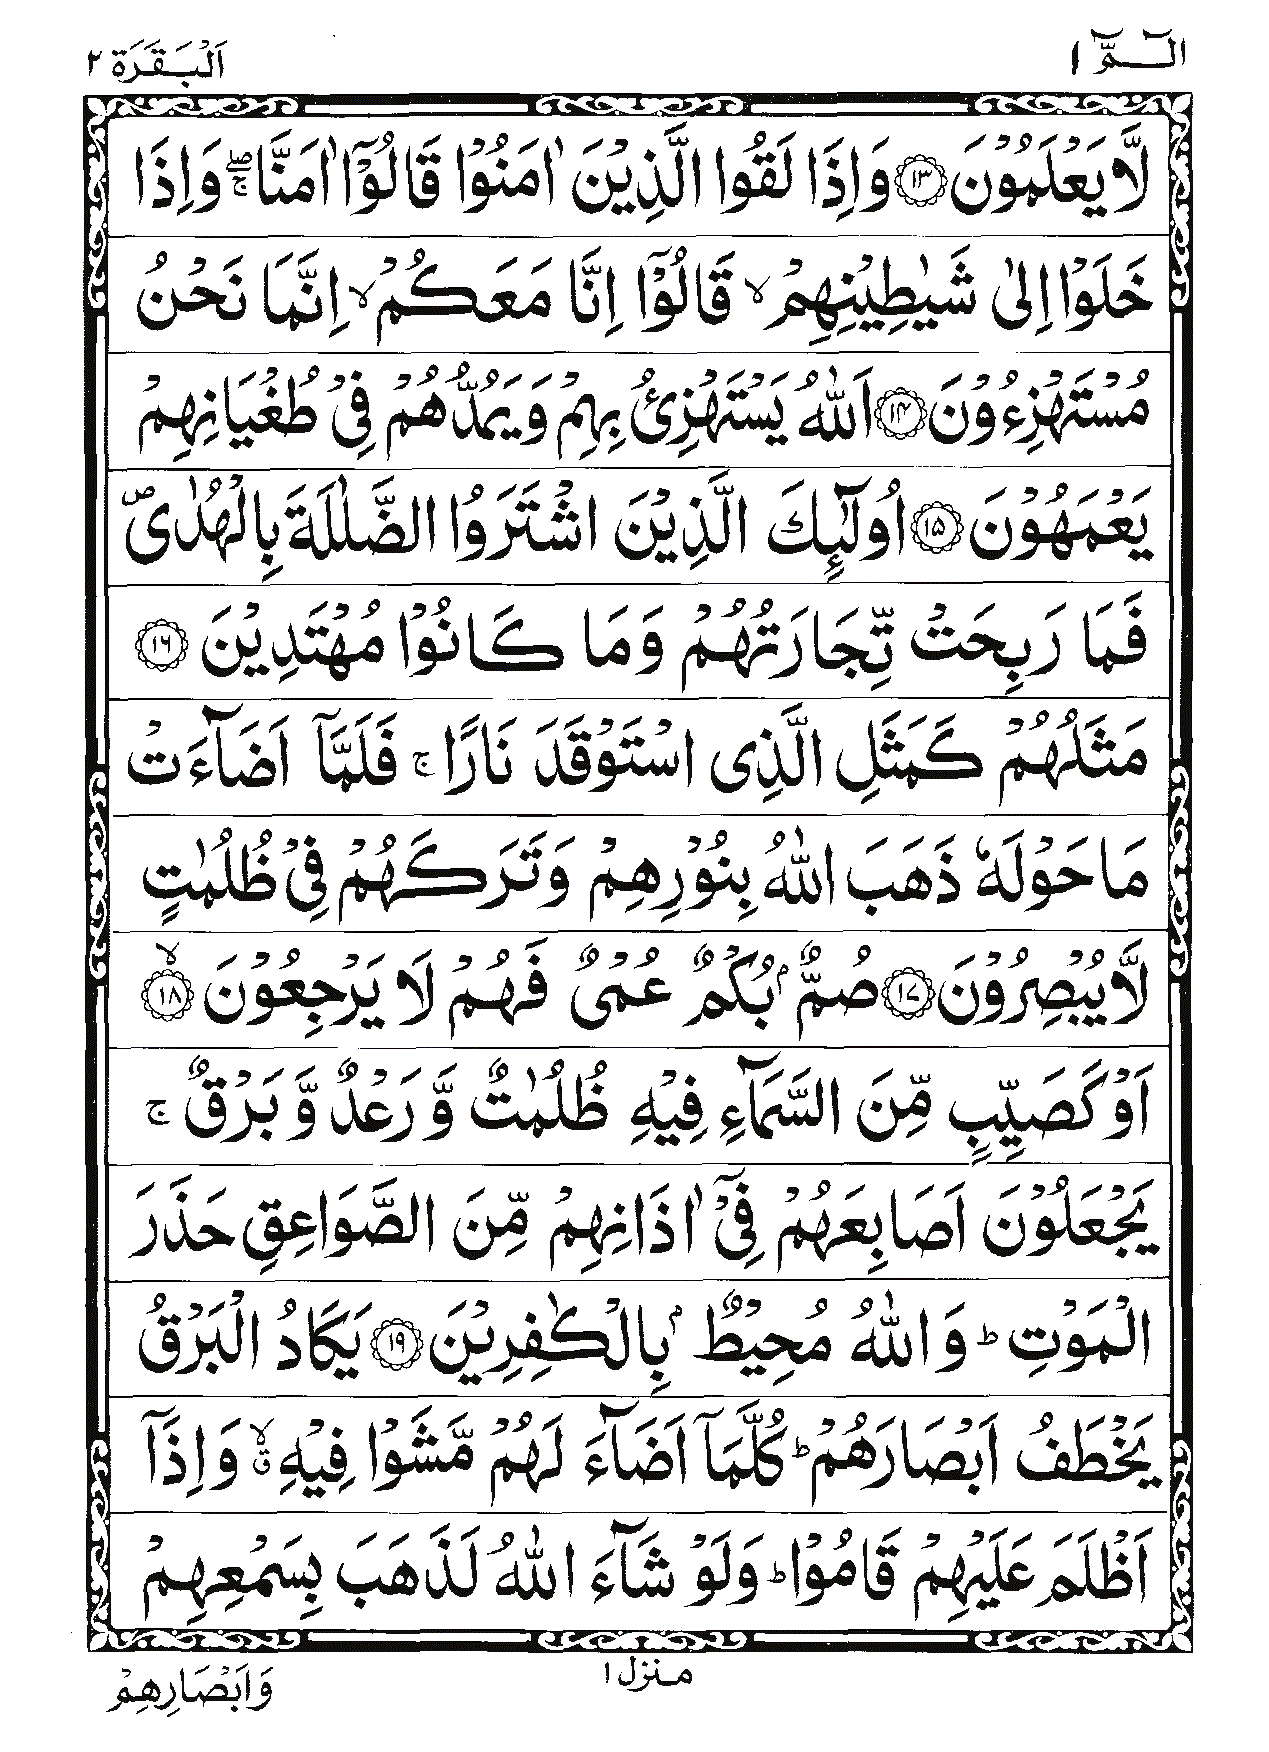 الٓـمّٓ ١ اَلْبَقَرَة ٢
لَّا يَعْلَمُوْنَ ﴿۱۳﴾ وَاِذَا لَقُوا الَّذِيْنَ اٰمَنُوْا قَالُوْٓا اٰمَنَّا ۖۚ وَاِذَا
خَلَوْا اِلٰى شَيٰطِيْنِهِمْ ۙ قَالُوْٓا اِنَّا مَعَكُمْ ۙ اِنَّمَا نَحْنُ
مُسْتَهْزِءُوْنَ ﴿۱۴﴾ اَللّٰهُ يَسْتَهْزِئُ بِهِمْ وَيَمُدُّهُمْ فِيْ طُغْيَانِهِمْ
يَعْمَهُوْنَ ﴿۱۵﴾ اُولٰٓئِكَ الَّذِيْنَ اشْتَرَوُا الضَّلٰلَةَ بِالْهُدٰى ۖ
فَمَا رَبِحَتْ تِّجَارَتُهُمْ وَمَا كَانُوْا مُهْتَدِيْنَ ﴿۱۶﴾
مَثَلُهُمْ كَمَثَلِ الَّذِى اسْتَوْقَدَ نَارًا ۚ فَلَمَّآ اَضَآءَتْ
مَا حَوْلَهٗ ذَهَبَ اللّٰهُ بِنُوْرِهِمْ وَتَرَكَهُمْ فِيْ ظُلُمٰتٍ
لَّا يُبْصِرُوْنَ ﴿۱۷﴾ صُمٌّۢ بُكْمٌ عُمْىٌ فَهُمْ لَا يَرْجِعُوْنَ ۙ﴿۱۸﴾
اَوْ كَصَيِّبٍ مِّنَ السَّمَآءِ فِيْهِ ظُلُمٰتٌ وَّرَعْدٌ وَّبَرْقٌ ۚ
يَجْعَلُوْنَ اَصَابِعَهُمْ فِيْٓ اٰذَانِهِمْ مِّنَ الصَّوَاعِقِ حَذَرَ
الْمَوْتِ ؕ وَاللّٰهُ مُحِيْطٌۢ بِالْكٰفِرِيْنَ ﴿۱۹﴾ يَكَادُ الْبَرْقُ
يَخْطَفُ اَبْصَارَهُمْ ؕ كُلَّمَآ اَضَآءَ لَهُمْ مَّشَوْا فِيْهِ ۙۗ وَاِذَآ
اَظْلَمَ عَلَيْهِمْ قَامُوْا ؕ وَلَوْ شَآءَ اللّٰهُ لَذَهَبَ بِسَمْعِهِمْ
منزل ١
وَاَبْصَارِهِمْ